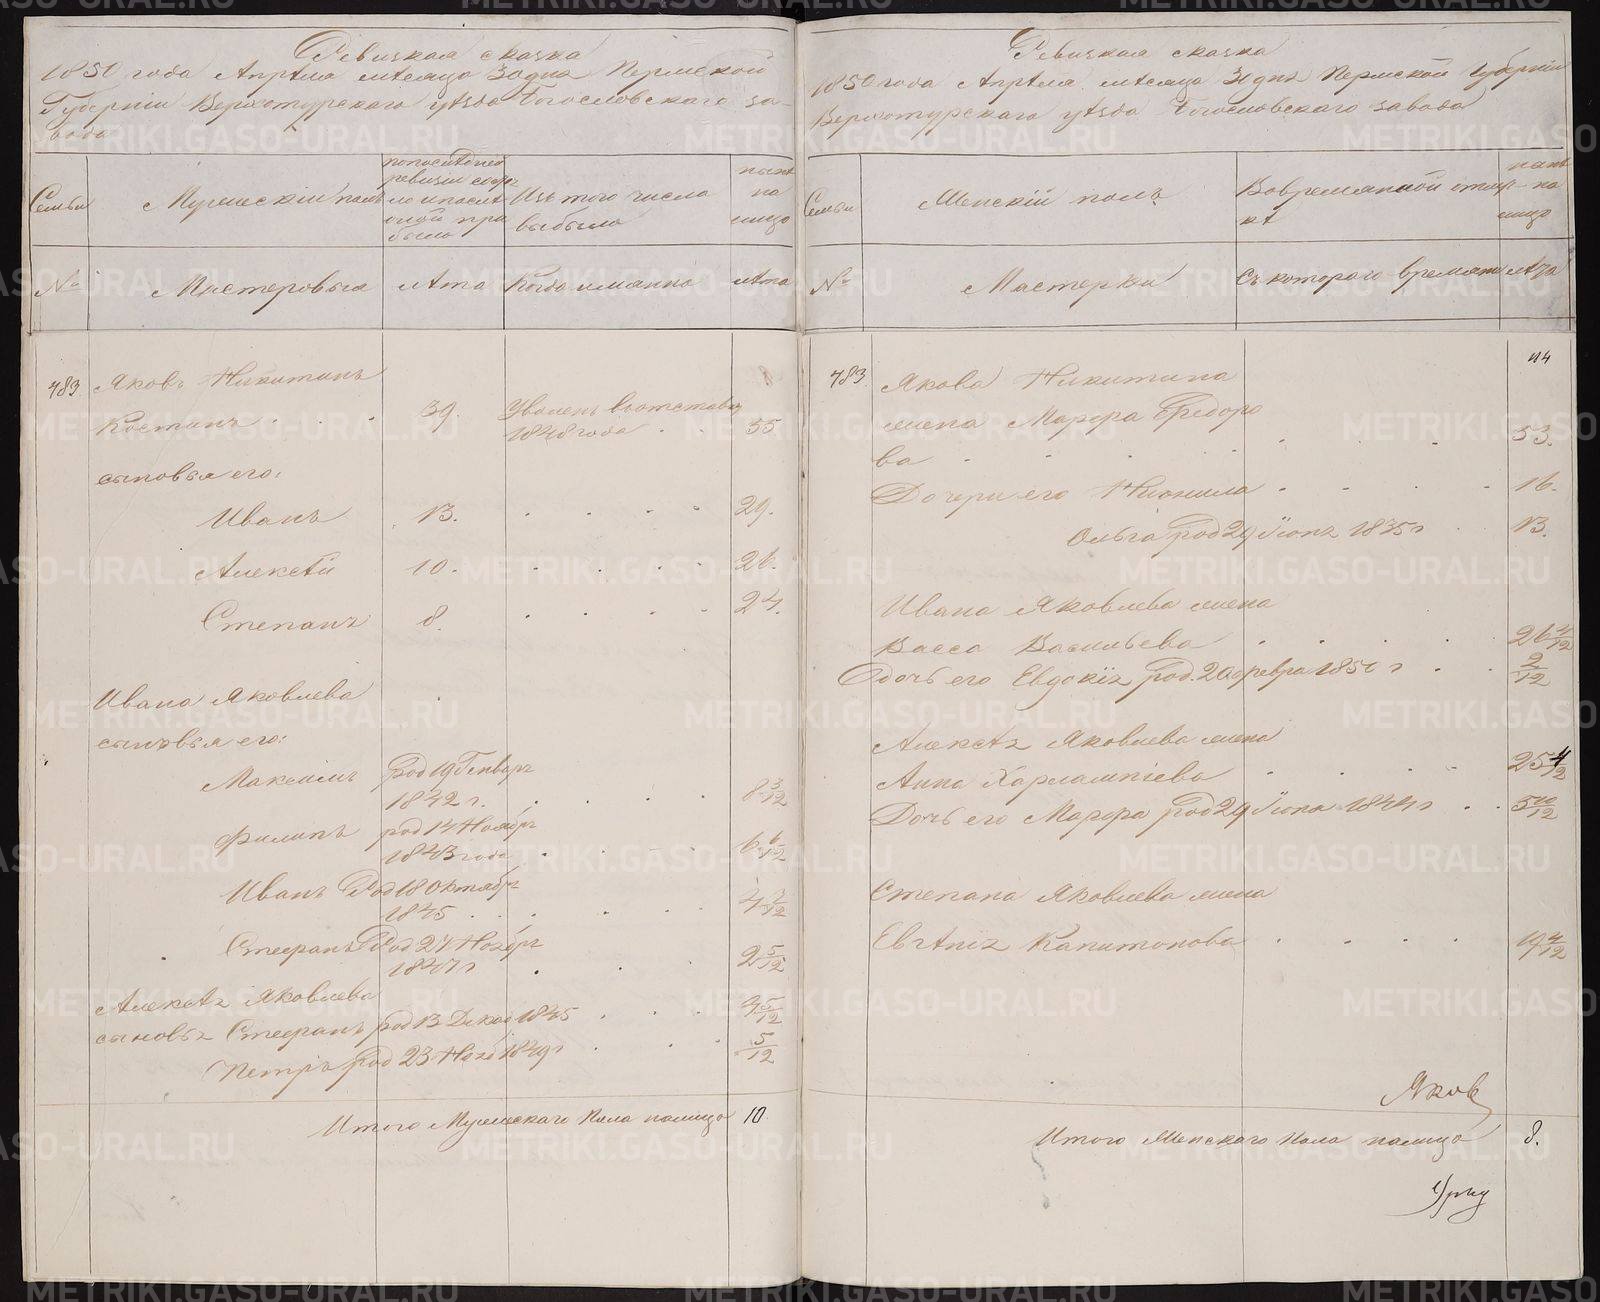 Ревизкая сказка
1850 года Апрѣля мѣсяца 30 дня Пермской
Губерніи Верхотурскаго уѣзда Богословскаго за-
вода
Семьи
Мужескій полъ
Изъ того числа
выбыло
на
лицо
№
Мастеровыя
Лѣта
Когда имянно
Лѣта
783
Яковъ Никитинъ
Костинъ . . . 39. Уволенъ вотставку
1848 года . . 55
сыновья его:
Иванъ 13. . . . . 29.
Алексѣй 10. . . . . 26.
Степанъ 8. . . . . 24.
Ивана Яковлева
сыновья его:
Максимъ род 19 Генваря
1842 г. . . . . 8 3/12
Филипъ род 14 Ноября
1843 года . . . . 6 6/12
Иванъ Род 18 Октября
1845 . . . . . 4 7/12
Стефанъ Род 27 Ноября
1847 г . . . 2 5/12
Алексѣя Яковлева
сыновья Стефанъ род 13 Декаб 1845 . . . 4 5/12
Петръ род 23 Нояб 1849 г . . . 5/12
Итого Мужескаго Пола налицо 10
Ревизкая сказка
1850 года Апрѣля мѣсяца 30 дня Пермской Губерніи
Верхотурскаго уѣзда Богословскаго завода
Семьи
Женскій полъ
Вовремянной отлуч-
кѣ
на
лицо
№
Мастерки
Съ котораго времяни
Лѣта
114
783
Якова Никитина
жена Марфа Ѳедоро
ва . . . . . . 53.
Дочери его Неонила . . . . 16.
Ольга род 29 Іюня 1835 г . 13.
Ивана Яковлева жена
Васса Васильева . . . . 26 4/12
дочь его Евдокія род. 20 февра 1850 г . . 2/12
Алексѣя Яковлева жена
Анна Харлампіева . . . . 25 4/12
Дочь его Марфа род 29 Іюня 1844 г . . 5 10/12
Степана Яковлева жена
Евгѣнія Капитонова . . . . 19 4/12
Яков
Итого Женскаго Пола налицо 8.
METRIKI.GASO-URAL.RU